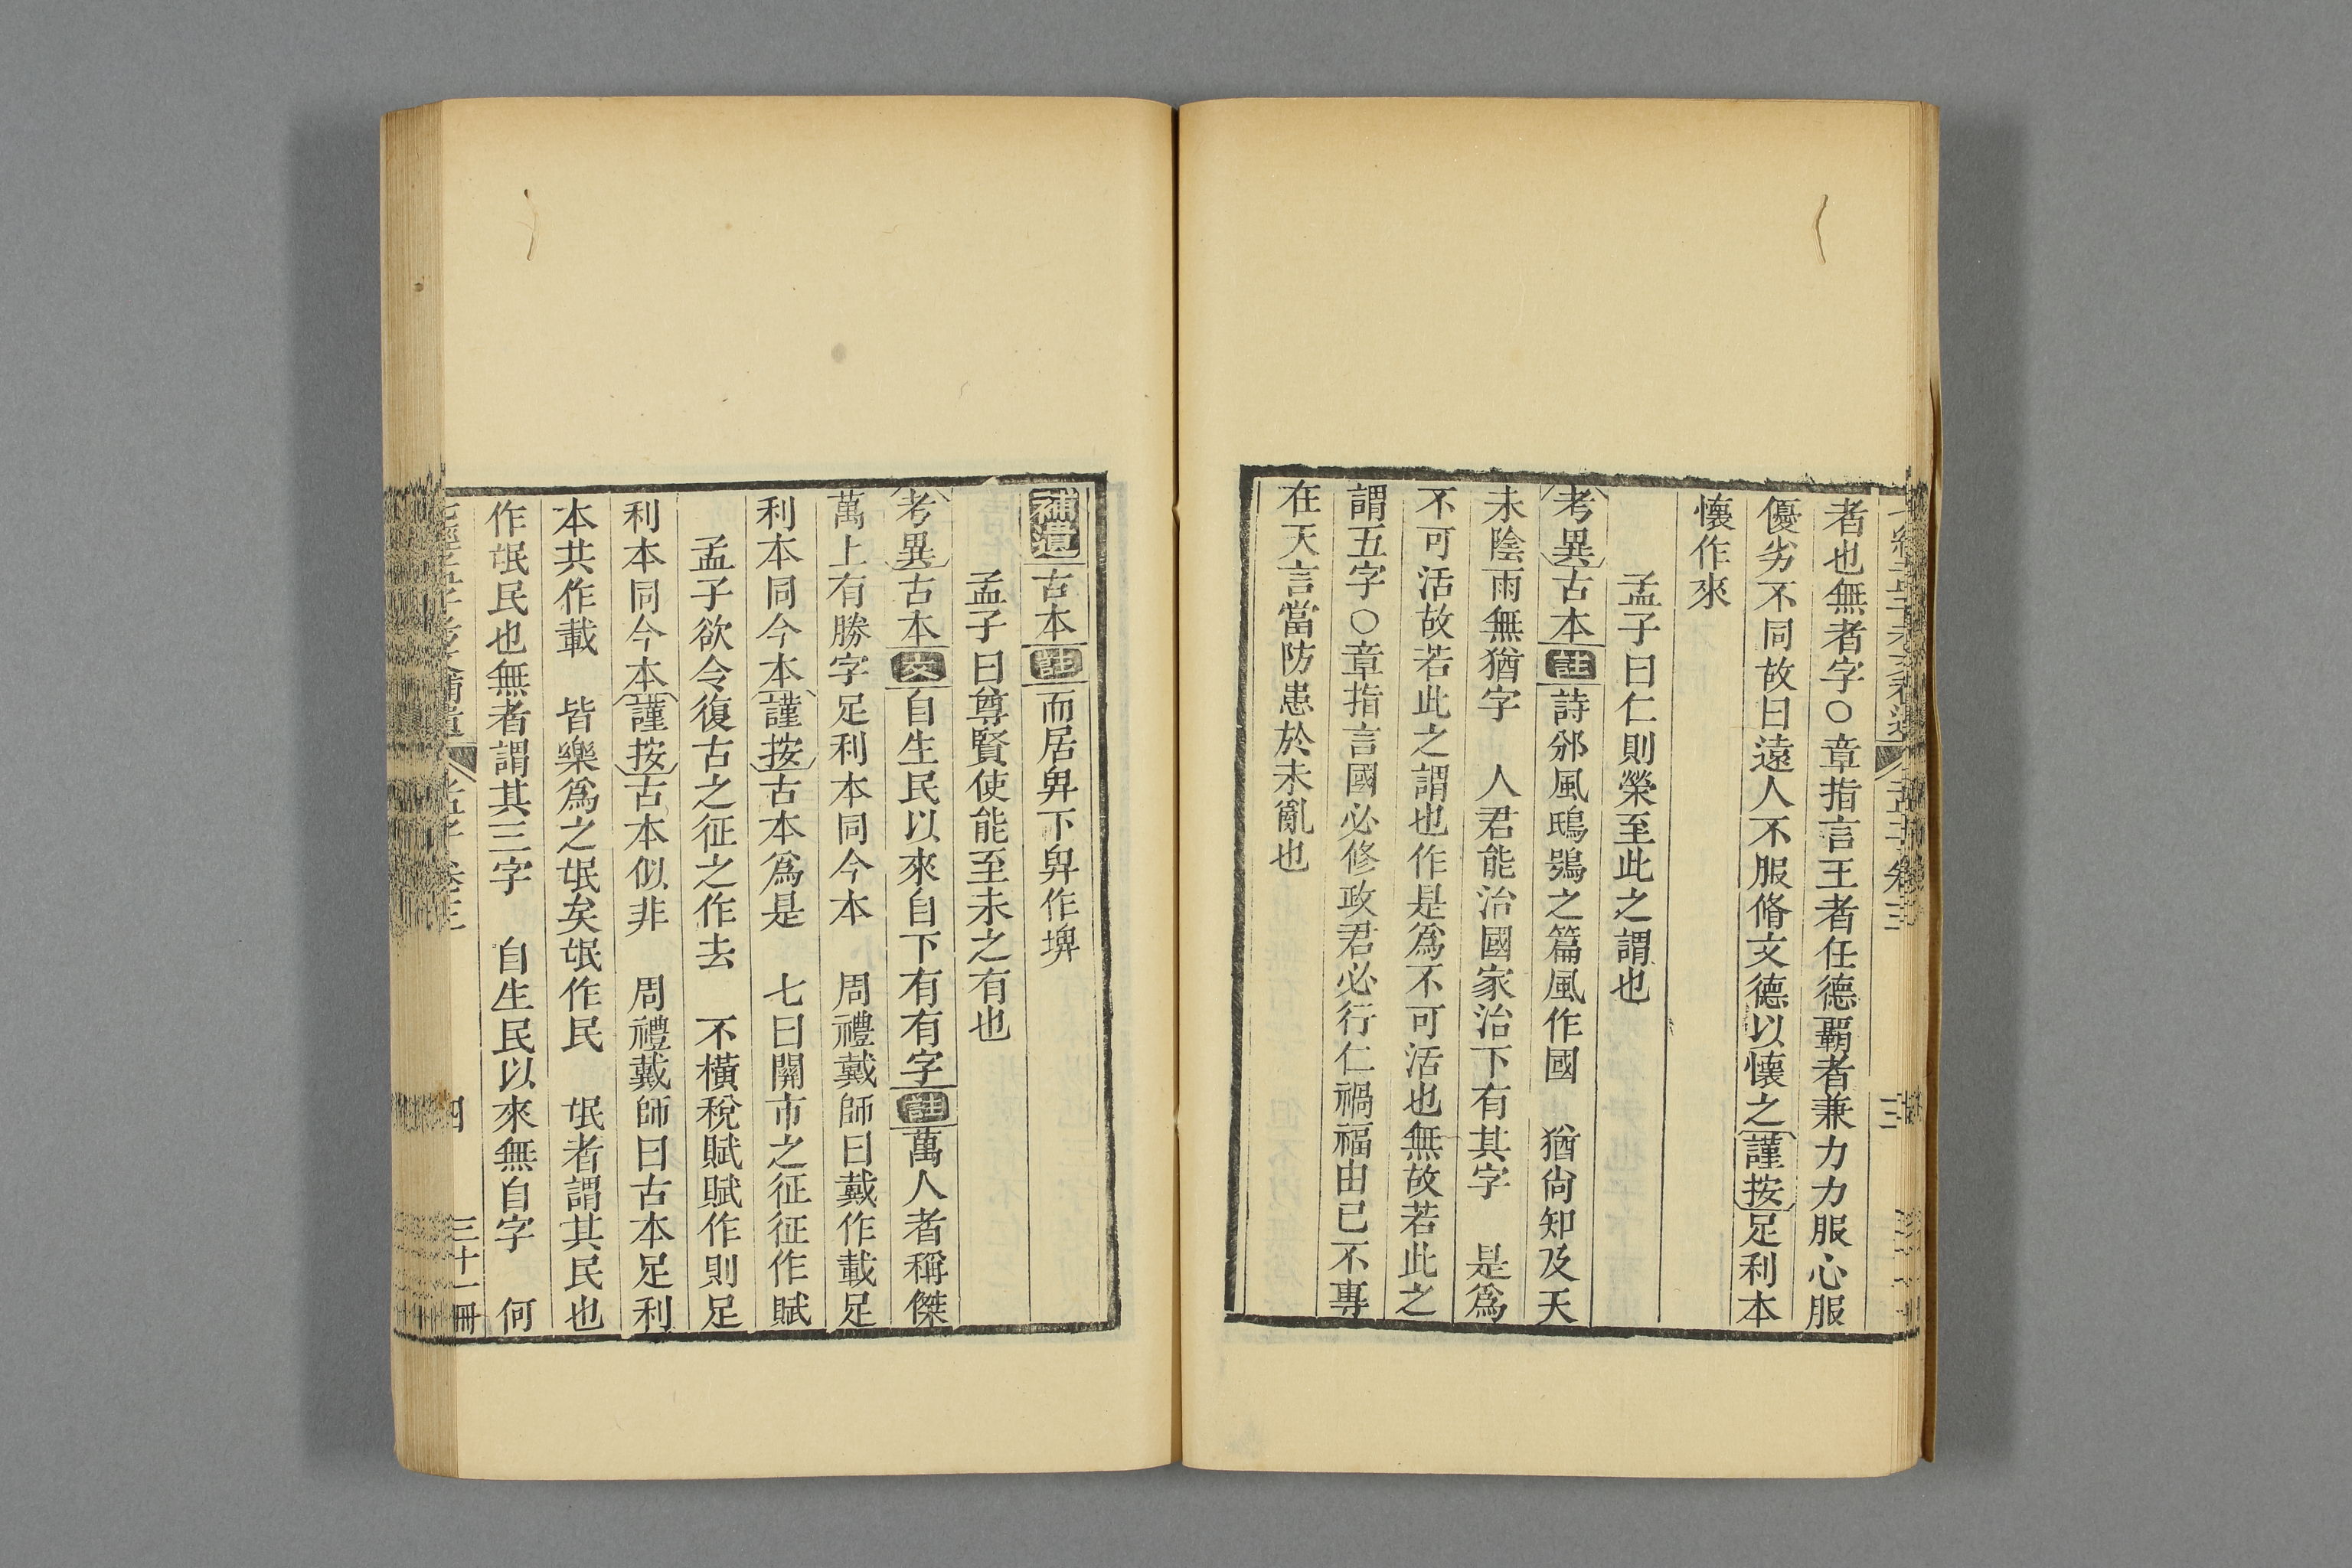 者也無者字○章指言王者任德覇者兼力力服心服
優劣不同故曰遠人不服脩文德以懷之謹按足利本
懷作來
孟子曰仁則榮至此之謂也
考異古本註詩邠風鴟鴞之篇風作國　猶尙知及天
未陰雨無猶字　人君能治國家治下有其字　是爲
不可活故若此之謂也作是爲不可活也無故若此之
謂五字○章指言國必修政君必行仁禍福由已不專
在天言當防患於未亂也
補遺古本註而居𤰞下𤰞作埤
孟子曰尊賢使能至未之有也
考異古本文自生民以來自下有有字註萬人者稱傑
萬上有勝字足利本同今本　周禮戴師曰戴作載足
利本同今本謹按古本爲是　七曰關市之征征作賦
孟子欲令復古之征之作去　不橫稅賦賦作則足
利本同今本謹按古本似非　周禮戴師曰古本足利
本共作載　皆樂爲之氓矣氓作民　氓者謂其民也
作氓民也無者謂其三字　自生民以來無自字　何
四
三十一冊